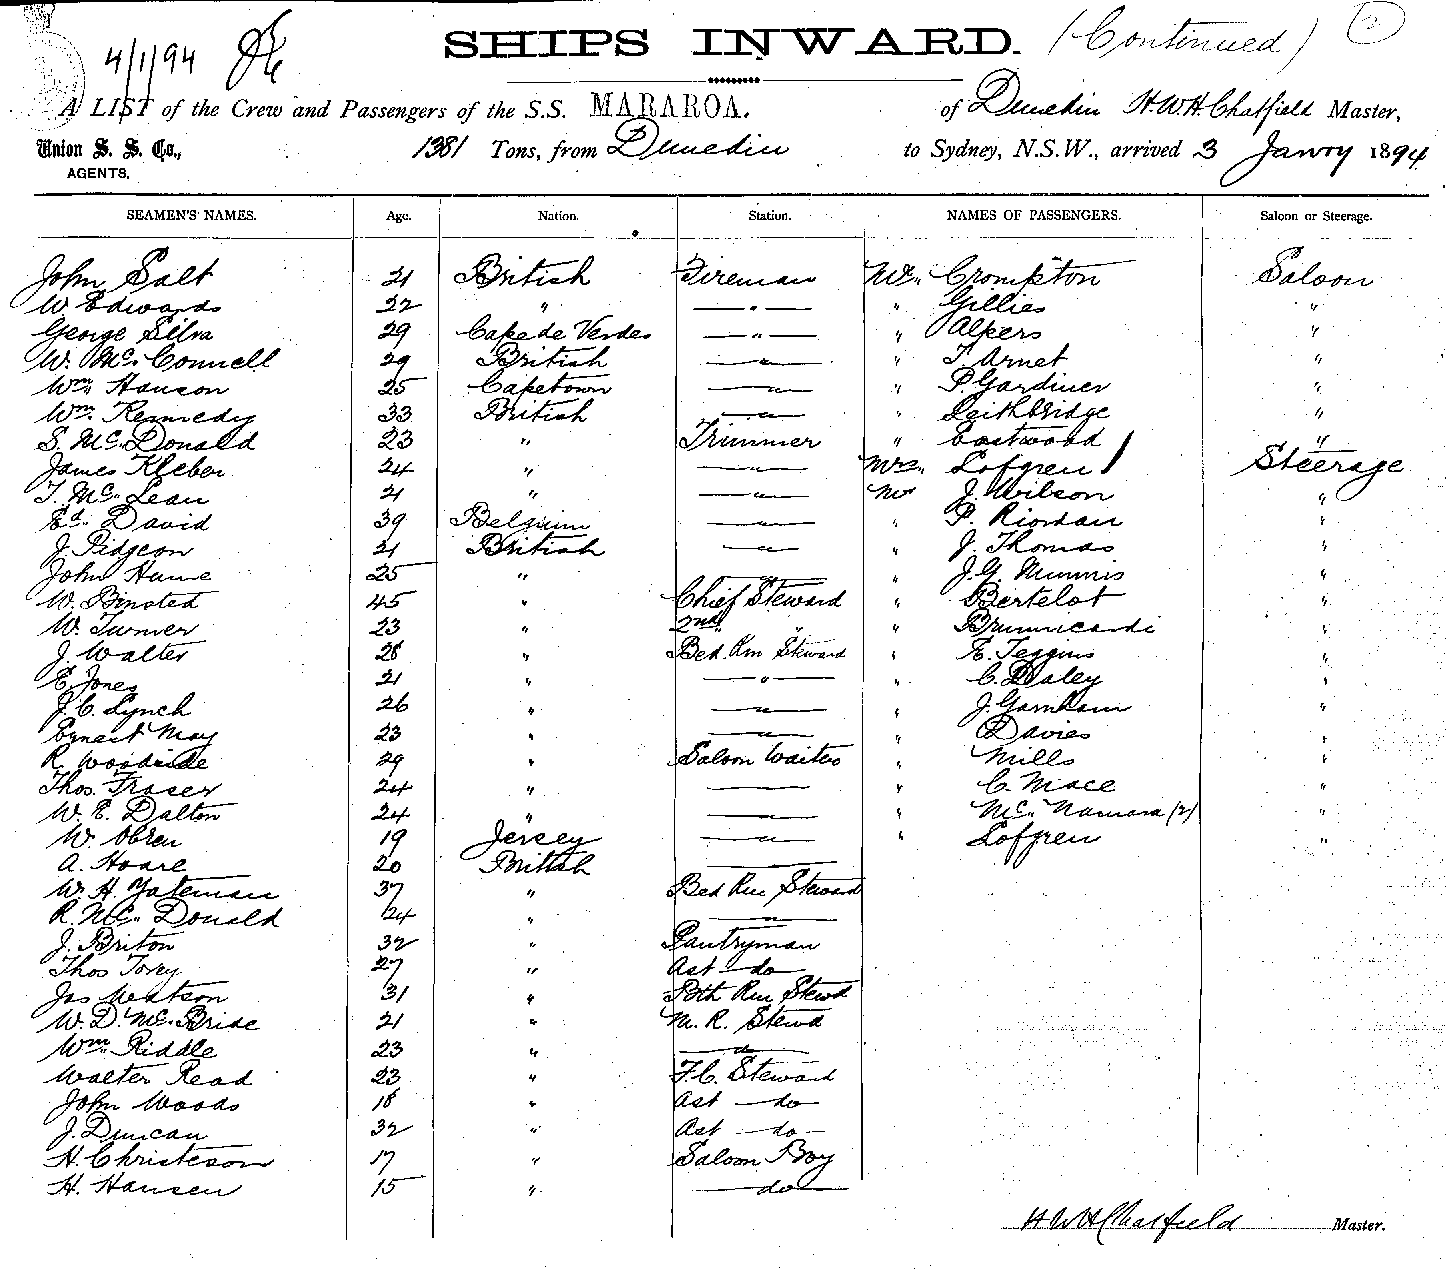 4/1/94
SHIPS INWARD. (Continued) 2
A LIST of the Crew and Passengers of the S.S. MARAROA. of Dunedin H.W.H. Chatfield Master,
Union S. S. Co., 1381 Tons, from Dunedin to Sydney, N.S.W., arrived 3 Janry 1894
AGENTS.
SEAMEN'S NAMES. Age. Nation. Station. NAMES OF PASSENGERS. Saloon or Steerage.
John Salt 21 British Fireman Mr. Crompton Saloon
W Edwards 22 " — " — " Gillies "
George Silva 29 Cape de Verdes — " — " Alpers "
W. McConnell 29 British — " — " T Arnet "
Wm. Hanson 25 Capetown — " — " P. Gardiner "
Wm. Kennedy 33 British — " — " Leithbridge "
S. McDonald 23 " Trimmer " Eastwood "
James Kleber 24 " — " — Mrs. Lofgren / Steerage
T. McLean 21 " — " — Mr J. Wilson "
Ed. David 39 Belgium — " — " P. Riordan "
J. Pidgeon 21 British — " — " J. Thomas "
John Hume 25 " — " J.G. Munnis "
W. Binsted 45 " Chief Steward " Bertelot "
W. Turner 23 " 2nd " " Brunicardi "
J. Walter 28 " Bed Rm Steward " E. Teggins "
E Jones 21 " — " — " C. Daley "
J. C. Lynch 26 " — " — " J. Garnham "
Ernest May 23 " — " — " Davies "
R. Woodside 29 " Saloon Waiter " Mills "
Thos. Fraser 24 " — " — " C. Mace "
W. E. Dalton 24 " — " — " McNamara (2) "
W. Obren 19 Jersey — " — " Lofgren "
A. Hoare 20 British —
W. H. Yateman 37 " Bed Rm Steward
R. McDonald 24 " — " —
J. Briton 32 " Pantryman
Thos Torey 27 " Ast — do —
Jas Watson 31 " Bth Rm Stewd
W. D. McBride 21 " M. R. Stewd
Wm. Riddle 23 " — do —
Walter Read 23 " F.C. Steward
John Woods 18 " Ast — do
J. Duncan 32 " Ast — do —
H. Christeson 17 " Saloon Boy
H. Hansen 15 " — do —
H W H Chatfield Master.